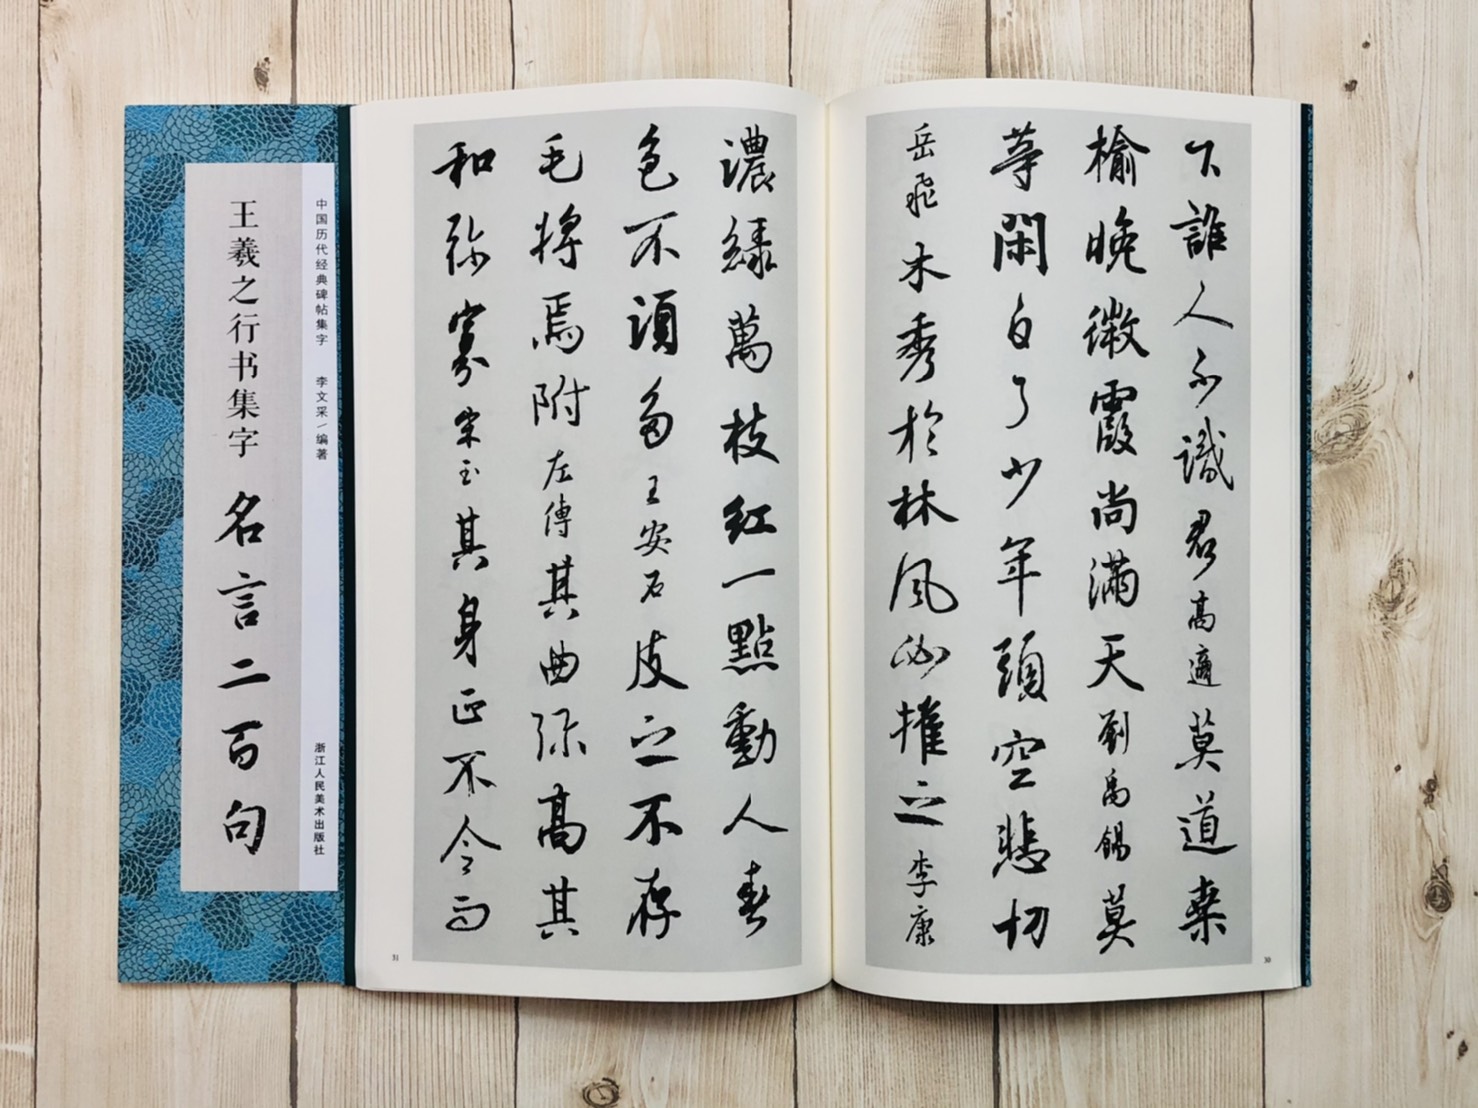 下誰人不識君高適莫道桑
榆晚微霞尚滿天劉禹錫莫
等閑白了少年頭空悲切
岳飛木秀於林風必摧之李康
30
濃綠萬枝紅一點動人春
色不須多王安石皮之不存
毛將焉附左傳其曲弥高其
和弥寡宋玉其身正不令而
31
中国历代经典碑帖集字 李文采/编著 浙江人民美术出版社
王羲之行书集字 名言二百句